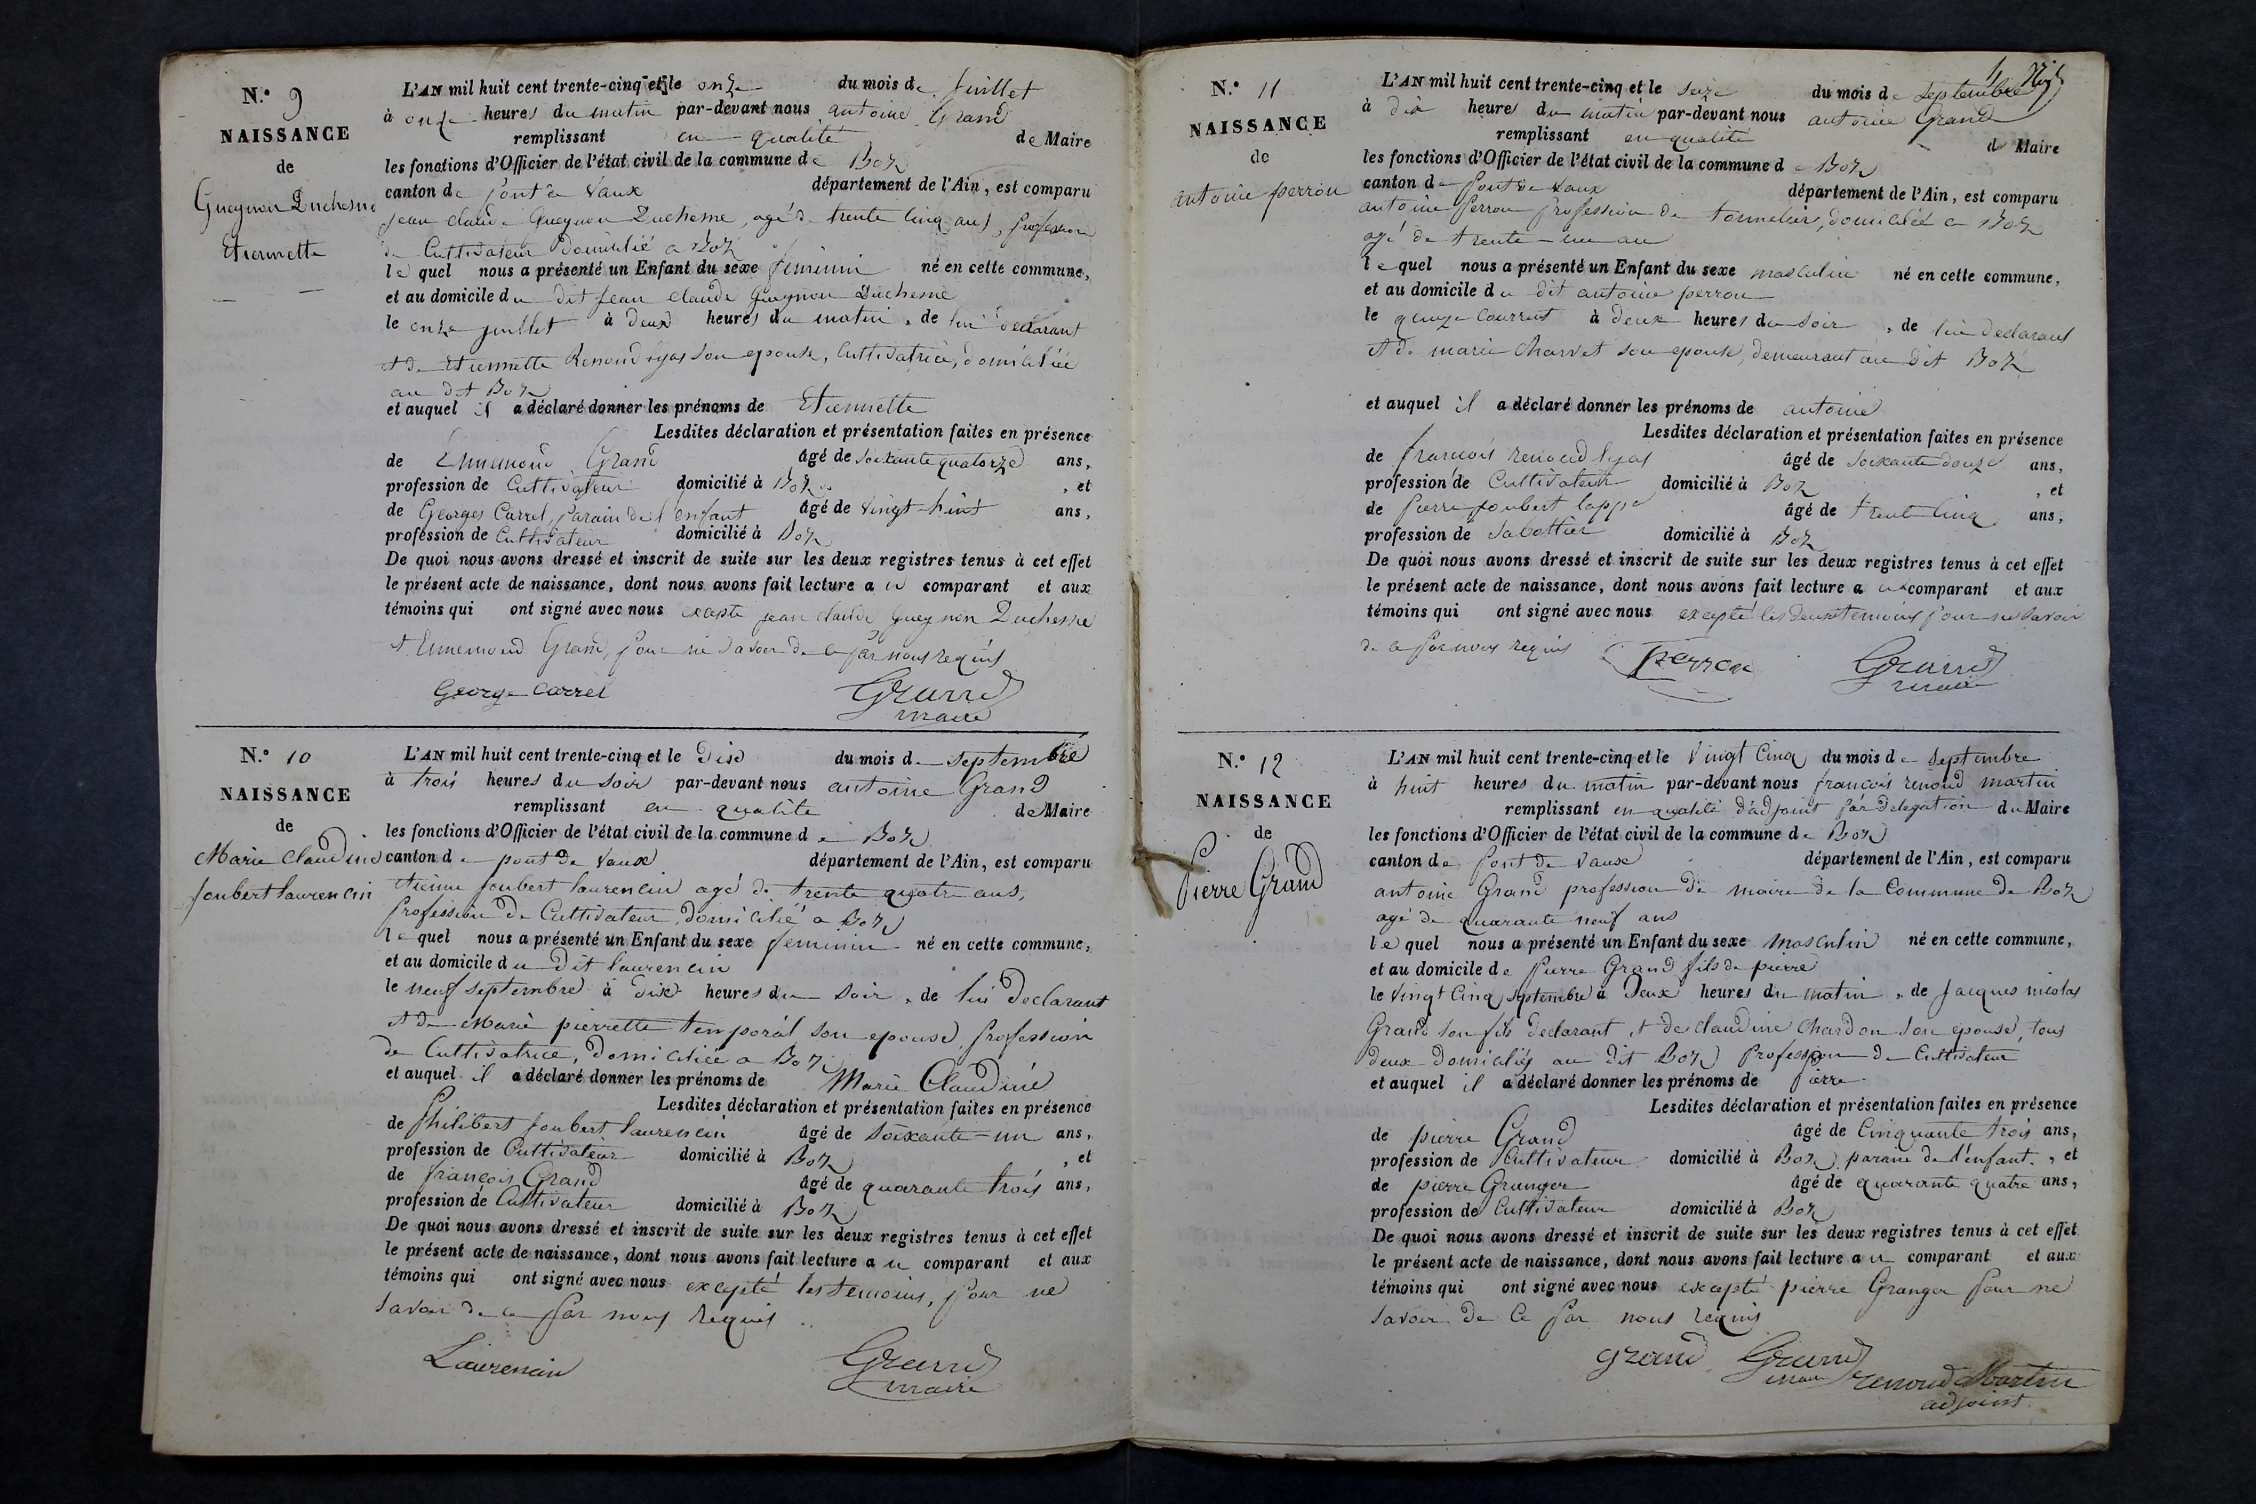 N.° 9
NAISSANCE
de
Gueynon Duchesne
Etiennette
L'AN mil huit cent trente-cinq et le onze du mois de Juillet
à onze heures du matin par-devant nous antoine Grand
remplissant en qualité de Maire
les fonctions d'Officier de l'état civil de la commune de Boz
canton de pont de Vaux département de l'Ain, est comparu
jean claude Gueynon Duchesne, agé de trente cinq ans, profession
de Cultivateur domicilié a Boz
le quel nous a présenté un Enfant du sexe feminin né en cette commune,
et au domicile du dit jean claude gueynon Duchesne
le onze juillet à deux heures du matin, de lui declarant
et de Etiennette Renoud lyas son epouse, Cultivatrice, domiciliée
au dit Boz
et auquel il a déclaré donner les prénoms de Etiennette
Lesdites déclaration et présentation faites en présence
de Ennemond Grand âgé de soixante quatorze ans,
profession de Cultivateur domicilié à Boz, et
de Georges Carrel parain de l'enfant âgé de vingt-huit ans,
profession de Cultivateur domicilié à Boz
De quoi nous avons dressé et inscrit de suite sur les deux registres tenus à cet effet
le présent acte de naissance, dont nous avons fait lecture au comparant et aux
témoins qui ont signé avec nous excepté jean claude gueynon Duchesne
et Ennemond Grand, pour ne savoir de ce par nous requis
George Carrel Grand
maire
N.° 10
NAISSANCE
de
Marie Claudine
Joubert laurencin
L'AN mil huit cent trente-cinq et le Dix du mois de septembre
à trois heures du soir par-devant nous antoine Grand
remplissant en qualité de Maire
les fonctions d'Officier de l'état civil de la commune de Boz
canton de pont de Vaux département de l'Ain, est comparu
étienne Joubert laurencin agé de trente quatre ans,
profession de Cultivateur domicilié a Boz
le quel nous a présenté un Enfant du sexe feminin né en cette commune,
et au domicile du Dit laurencin
le neuf septembre à dix heures du soir, de lui declarant
et de Marie pierrette temporal son epouse, profession
de Cultivatrice, domiciliée a Boz
et auquel il a déclaré donner les prénoms de Marie Claudine
Lesdites déclaration et présentation faites en présence
de Philibert Joubert laurencin âgé de soixante-un ans,
profession de Cultivateur domicilié à Boz, et
de françois Grand âgé de quarante trois ans,
profession de Cultivateur domicilié à Boz
De quoi nous avons dressé et inscrit de suite sur les deux registres tenus à cet effet
le présent acte de naissance, dont nous avons fait lecture au comparant et aux
témoins qui ont signé avec nous excepté les temoins, pour ne
savoir de ce par nous requis.
Laurencin Grand
maire
N.° 11
NAISSANCE
de
antoine perron
L'AN mil huit cent trente-cinq et le seize du mois de septembre
à dix heures du matin par-devant nous antoine Grand
remplissant en qualité de Maire
les fonctions d'Officier de l'état civil de la commune de Boz
canton de pont de Vaux département de l'Ain, est comparu
antoine perron profession de tonnelier, domicilié a Boz
agé de trente-un an
le quel nous a présenté un Enfant du sexe masculin né en cette commune,
et au domicile du dit antoine perron
le quinze courrant à deux heures du soir, de lui declarant
et de marie Charvet son epouse, demeurant au dit Boz
et auquel il a déclaré donner les prénoms de antoine
Lesdites déclaration et présentation faites en présence
de francois renoud lyas âgé de soixante douze ans,
profession de Cultivateur domicilié à Boz, et
de pierre Joubert lappe âgé de trente cinq ans,
profession de Sabottier domicilié à Boz
De quoi nous avons dressé et inscrit de suite sur les deux registres tenus à cet effet
le présent acte de naissance, dont nous avons fait lecture au comparant et aux
témoins qui ont signé avec nous excepté les deux temoins pour ne savoir
de ce par nous requis Perron Grand
maire
N.° 12
NAISSANCE
de
Pierre Grand
L'AN mil huit cent trente-cinq et le Vingt Cinq du mois de septembre
à huit heures du matin par-devant nous françois renoud martin
remplissant en qualité d'adjoint par delegation du Maire
les fonctions d'Officier de l'état civil de la commune de Boz
canton de pont de Vaux département de l'Ain, est comparu
antoine Grand profession de maire de la Commune de Boz
agé de quarante neuf ans
le quel nous a présenté un Enfant du sexe masculin né en cette commune,
et au domicile de pierre Grand fils de pierre
le Vingt Cinq septembre à Deux heures du matin, de Jacques nicolas
Grand son fils declarant, et de claudine Chardon son epouse, tous
deux domiciliés au dit Boz profession de Cultivateur
et auquel il a déclaré donner les prénoms de pierre
Lesdites déclaration et présentation faites en présence
de pierre Grand âgé de Cinquante trois ans,
profession de Cultivateur domicilié à Boz parain de l'enfant, et
de pierre Granger âgé de quarante quatre ans,
profession de Cultivateur domicilié à Boz
De quoi nous avons dressé et inscrit de suite sur les deux registres tenus à cet effet
le présent acte de naissance, dont nous avons fait lecture au comparant et aux
témoins qui ont signé avec nous excepté pierre Granger pour ne
savoir de Ce par nous requis
grand Grand
maire renoud Martin
adjoint